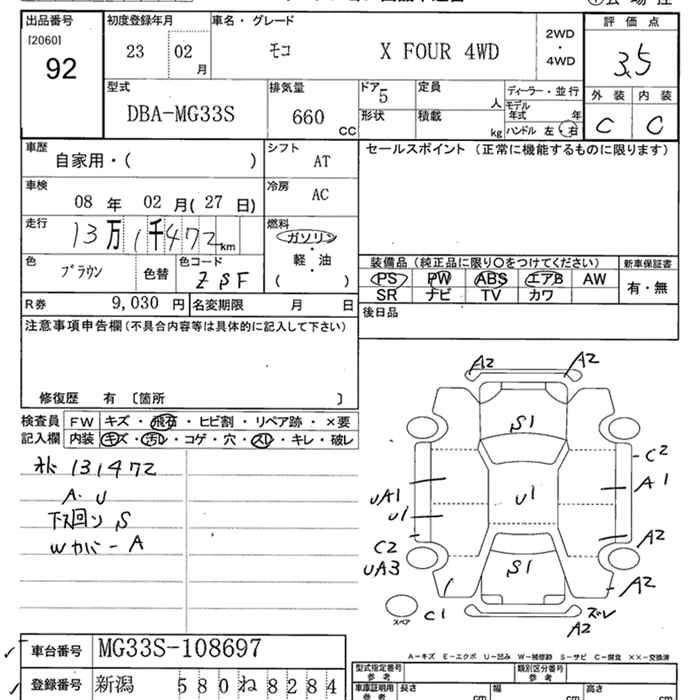 出品番号 初度登録年月 車名・グレード 評価点
[2060] 92 23 02月 モコ X FOUR 4WD 2WD・4WD 3.5
型式 排気量 ドア 5 定員 人 ディーラー・並行 外装 内装
DBA-MG33S 660 CC 形状 積載 kg モデル年式 年 C C
ハンドル 左 右
車歴 自家用・( ) シフト AT セールスポイント (正常に機能するものに限ります)
車検 08年 02月(27日) 冷房 AC
走行 13万1千472km 燃料 ガソリン・軽・油 ( )
色 ブラウン 色替 色コード ZSF
装備品 (純正品に限り〇をつけてください) 新車保証書
PS PW ABS エアB AW 有・無
SR ナビ TV カワ
R券 9,030円 名変期限 月 日
後日品
注意事項申告欄(不具合内容等は具体的に記入して下さい)
修復歴 有 〔箇所 〕
検査員 FW キズ・飛石・ヒビ割・リペア跡・×要
記入欄 内装 キズ・汚レ・コゲ・穴・スレ・キレ・破レ
131472
A.U
下廻り S
Wカバー A
A2 A2
S1
C2
A1
UA1
U1
U1
C2
A2
UA3
S1
A2
スペア
C1
ズレ
A2
A-キズ E-エクボ U-凹み W-補修跡 S-サビ C-腐食 ××-交換済
車台番号 MG33S-108697
登録番号 新潟 580ね8284
型式指定番号 参考 類別区分番号 参考
車庫証明用 参考 長さ cm 幅 cm 高さ cm